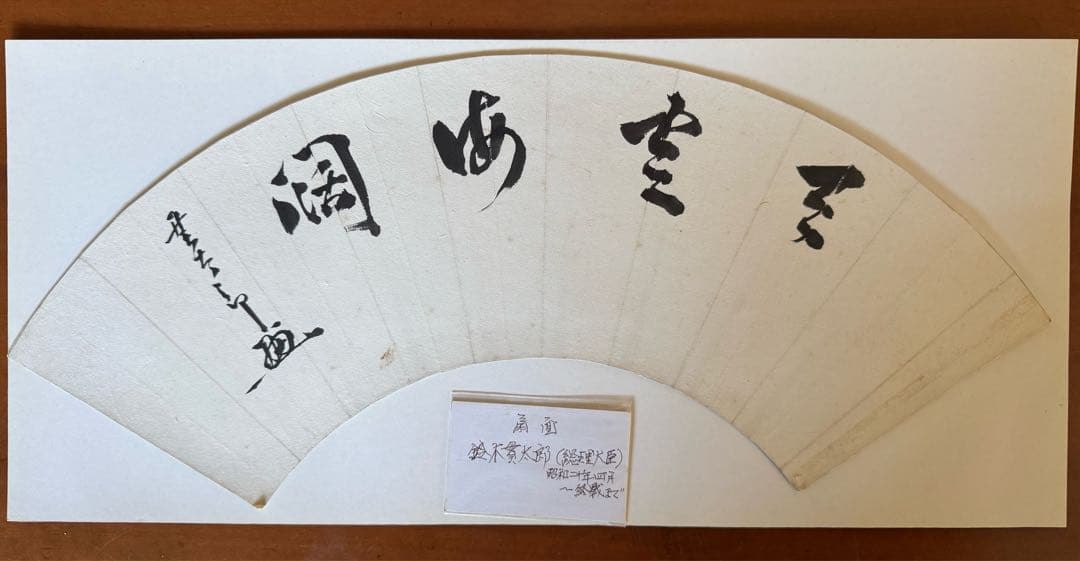 天空海闊
貫太郎
扇面
鈴木貫太郎(総理大臣)
昭和二十年四月
〜終戦まで